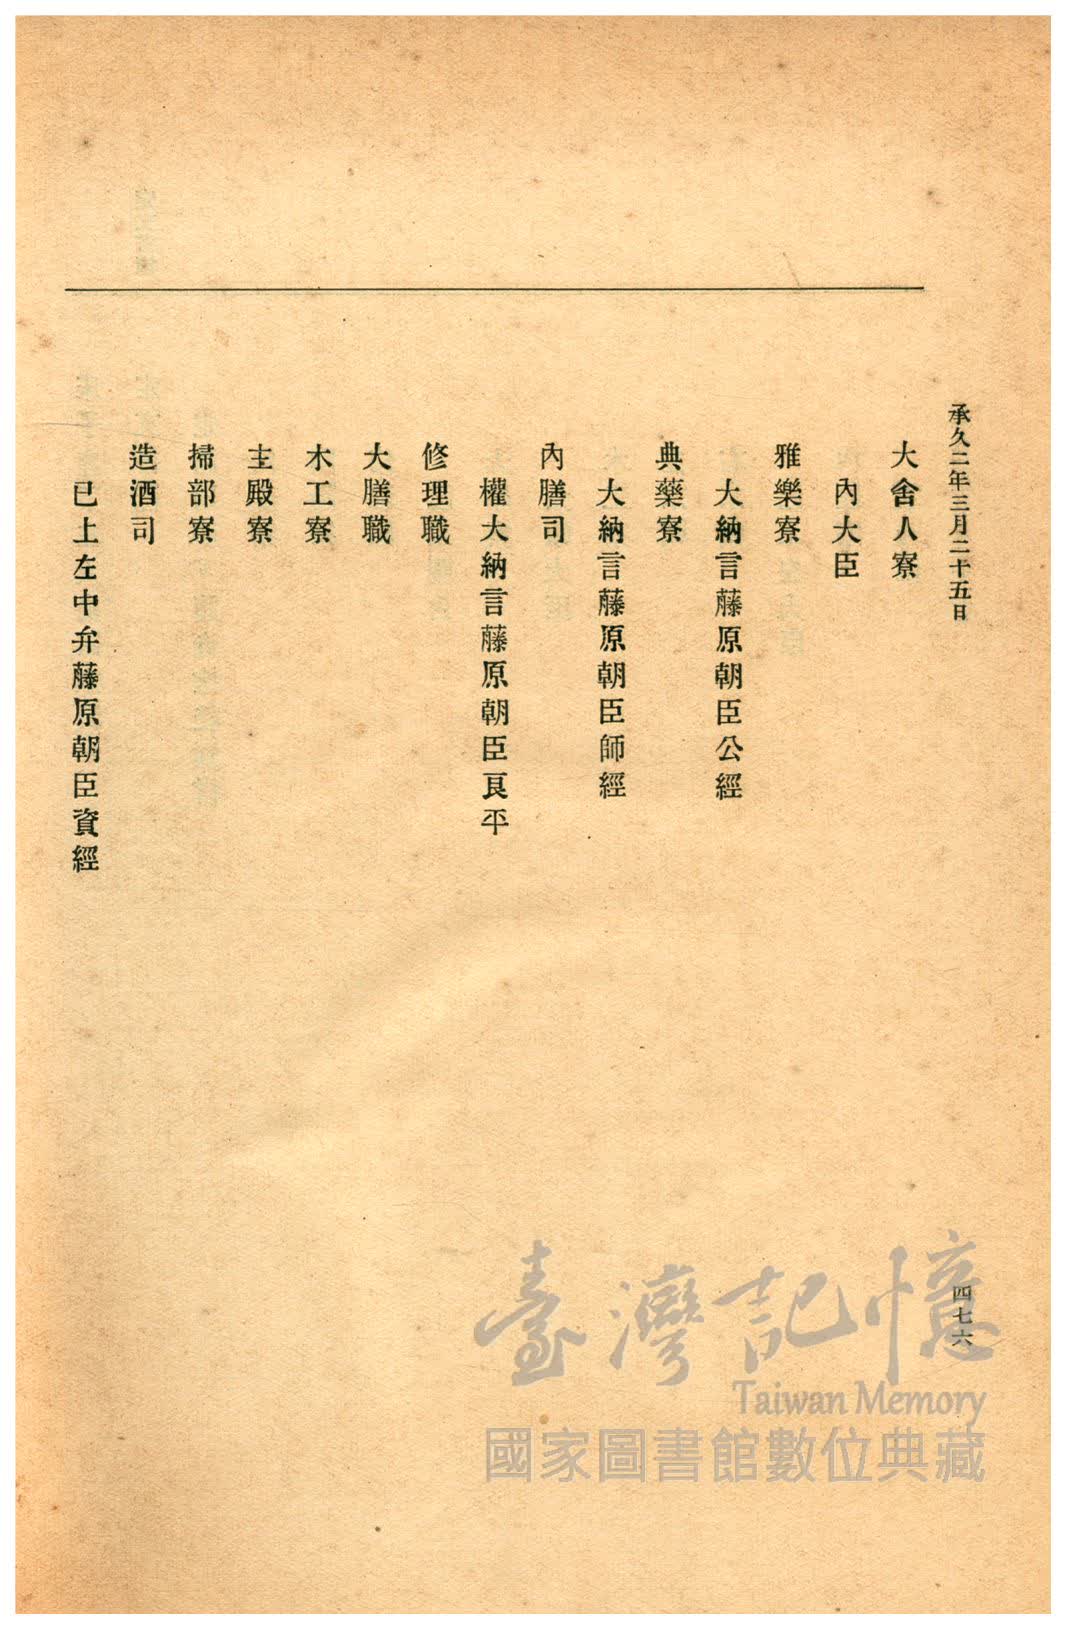 承久二年三月二十五日
四七六
大舍人寮
內大臣
雅樂寮
大納言藤原朝臣公經
典藥寮
大納言藤原朝臣師經
內膳司
權大納言藤原朝臣良平
修理職
大膳職
木工寮
主殿寮
掃部寮
造酒司
已上左中弁藤原朝臣資經
臺灣記憶
Taiwan Memory
國家圖書館數位典藏